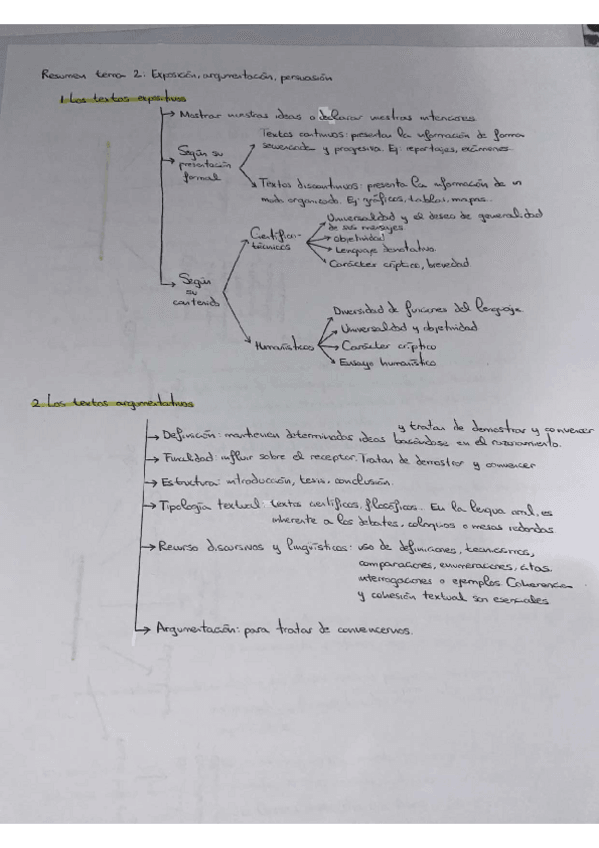 Resumen tema 2: Exposición, argumentación, persuasión
1. Los textos expositivos
Mostrar nuestras ideas o declarar nuestras intenciones
Según su presentación formal
Textos continuos: presentan la información de forma
secuenciada y progresiva. Ej: reportajes, exámenes
Textos discontinuos: presenta la información de un
modo organizado. Ej: gráficos, tablas, mapas...
Según su contenido
Científico-técnicos
Universalidad y el deseo de generalidad
de sus mensajes
Objetividad
Lenguaje denotativo
Carácter críptico, brevedad
Humanísticos
Diversidad de funciones del lenguaje
Universalidad y objetividad
Carácter críptico
Ensayo humanístico
2. Los textos argumentativos
Definición: mantienen determinadas ideas basándose en el razonamiento.
y tratan de demostrar y convencer
Finalidad: influir sobre el receptor. Tratan de demostrar y convencer
Estructura: introducción, tesis, conclusión.
Tipología textual: textos científicos, filosóficos... En la lengua oral, es
inherente a los debates, coloquios o mesas redondas
Recurso discursivos y lingüísticos: uso de definiciones, tecnicismos,
comparaciones, enumeraciones, citas.
interrogaciones o ejemplos Coherencia
y cohesión textual son esenciales
Argumentación: para tratar de convencernos.